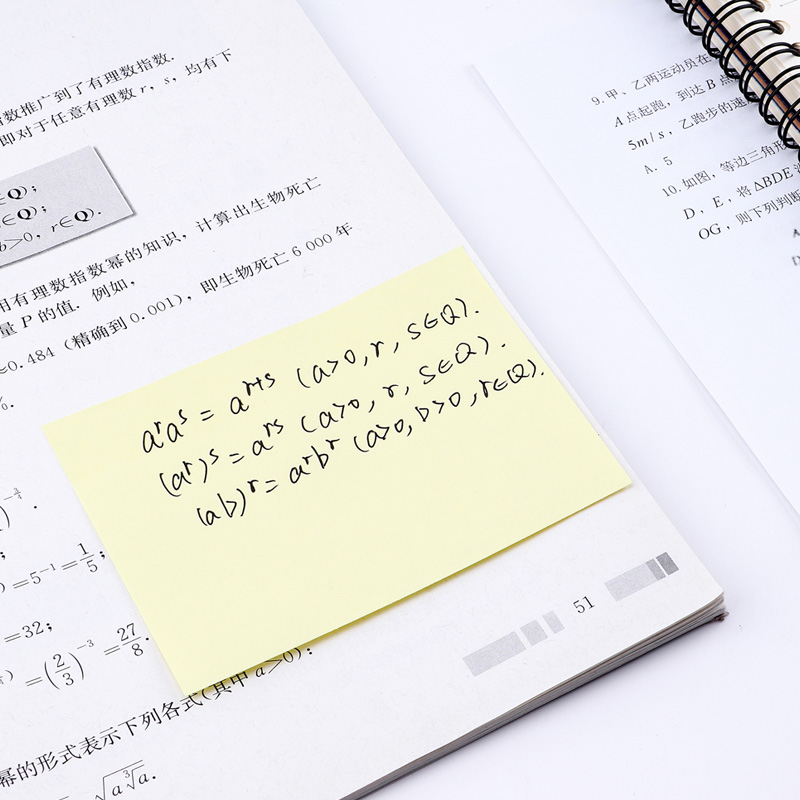 指数推广到了有理数指数.
即对于任意有理数 r, s, 均有下
∈Q);
∈Q);
b>0, r∈Q).
用有理数指数幂的知识, 计算出生物死亡
量 P 的值. 例如,
即生物死亡 6 000 年
≈0.484 (精确到 0.001),
%.
aʳaˢ = aʳ⁺ˢ (a>0, r, s∈Q).
(aʳ)ˢ = aʳˢ (a>0, r, s∈Q).
(ab)ʳ = aʳbʳ (a>0, b>0, r∈Q).
=5⁻¹=1/5;
=32;
=(2/3)⁻³=27/8.
幂的形式表示下列各式(其中 a>0):
√(a∛a).
51
9. 甲、乙两运动员在
A 点起跑, 到达 B 点
5m/s, 乙跑步的速
A. 5
10. 如图, 等边三角形
D, E, 将 △BDE 沿
OG, 则下列判断